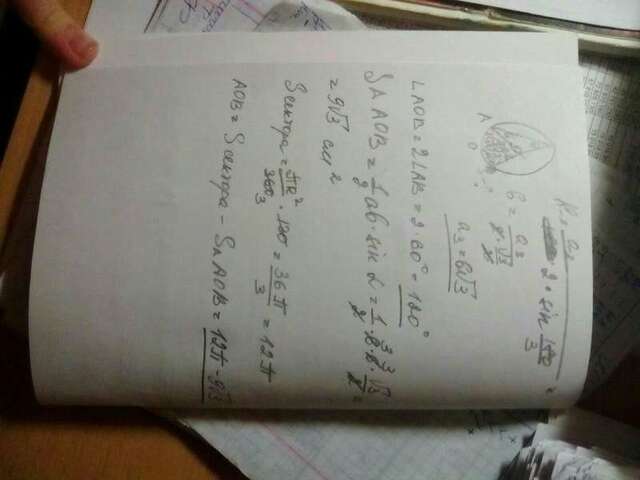 R = a₃ / 2 · sin 180/3 =
6 = a₃ / 2 · √3/2
a₃ = 6√3
A
O
∠AOB = 2∠AB = 2 · 60° = 120°
S△AOB = 1/2 ab · sin α = 1/2 · 6 · 6 · √3/2 =
= 9√3 см²
Sсектора = πR²/360 · 120 = 36π/3 = 12π
AOB = Sсектора - S△AOB = 12π - 9√3